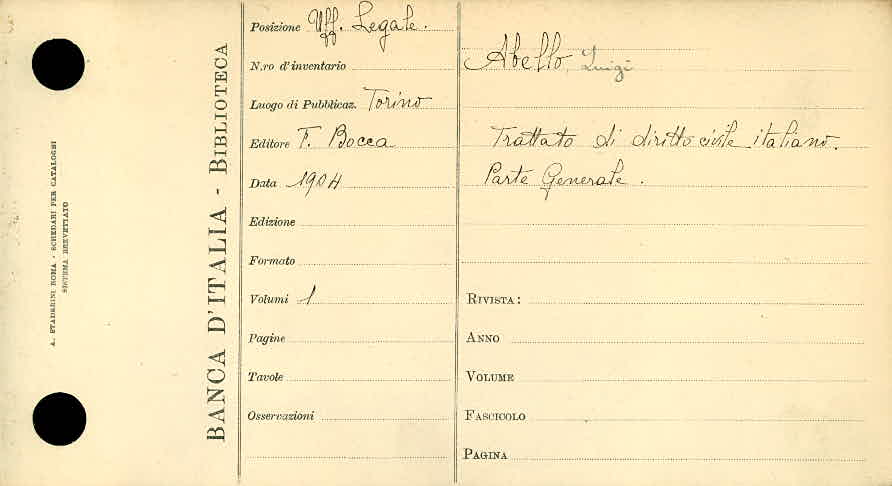 A. STADERINI ROMA - SCHEDARI PER CATALOGHI
SISTEMA BREVETTATO
BANCA D'ITALIA - BIBLIOTECA
Posizione Uff. Legale.
N.ro d'inventario
Luogo di Pubblicaz. Torino
Editore F. Bocca
Data 1904
Edizione
Formato
Volumi 1
Pagine
Tavole
Osservazioni
Abello, Luigi
Trattato di diritto civile italiano.
Parte Generale.
RIVISTA:
ANNO
VOLUME
FASCICOLO
PAGINA